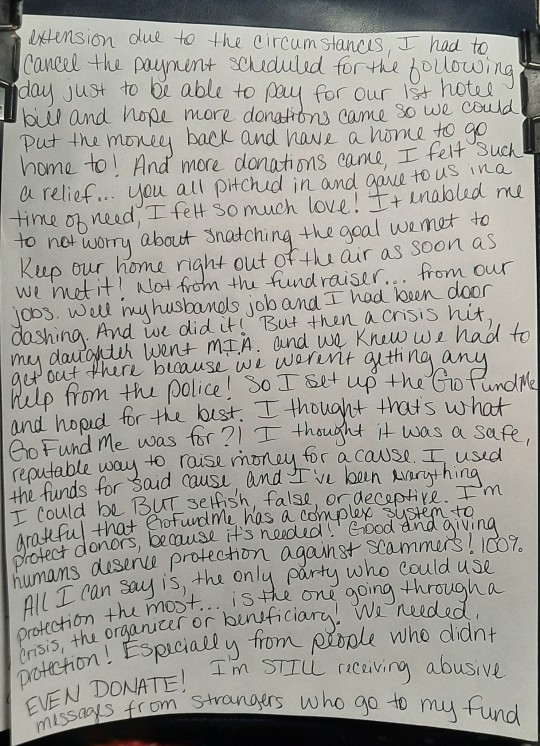 extension due to the circumstances, I had to
cancel the payment scheduled for the following
day just to be able to pay for our 1st hotel
bill and hope more donations came so we could
put the money back and have a home to go
home to! And more donations came, I felt such
a relief... you all pitched in and gave to us in a
time of need, I felt so much love! It enabled me
to not worry about snatching the goal we met to
keep our home right out of the air as soon as
we met it! Not from the fundraiser... from our
jobs. Well my husbands job and I had been door
dashing. And we did it! But then a crisis hit,
my daughter went M.I.A. and we knew we had to
get out there because we weren't getting any
help from the police! So I set up the GoFundMe
and hoped for the best. I thought that's what
GoFundMe was for?! I thought it was a safe,
reputable way to raise money for a cause. I used
the funds for said cause and I've been everything
I could be BUT selfish, false, or deceptive. I'm
grateful that GoFundMe has a complex system to
protect donors, because it's needed! Good and giving
humans deserve protection against scammers! 100%
All I can say is, the only party who could use
protection the most... is the one going through a
crisis, the organizer or beneficiary! We needed
protection! Especially from people who didnt
EVEN DONATE! I'm STILL receiving abusive
messages from strangers who go to my fund